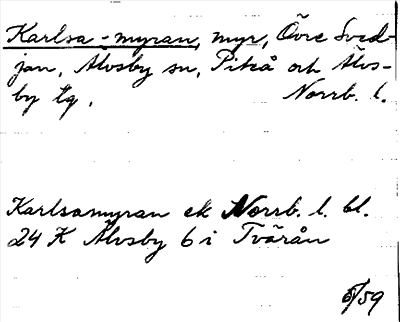 Karlsa-myran, myr, Övre Sved-
jan, Älvsby sn, Piteå och Älvs-
by tg, Norrb. l.
Karlsamyran ek Norrb. l. bl.
24 K Älvsby 6 i Tvärån
5/59